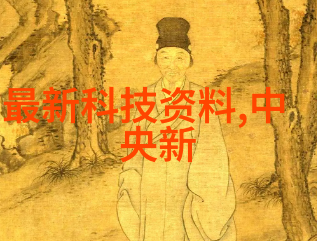 最新科技资料,中
央新